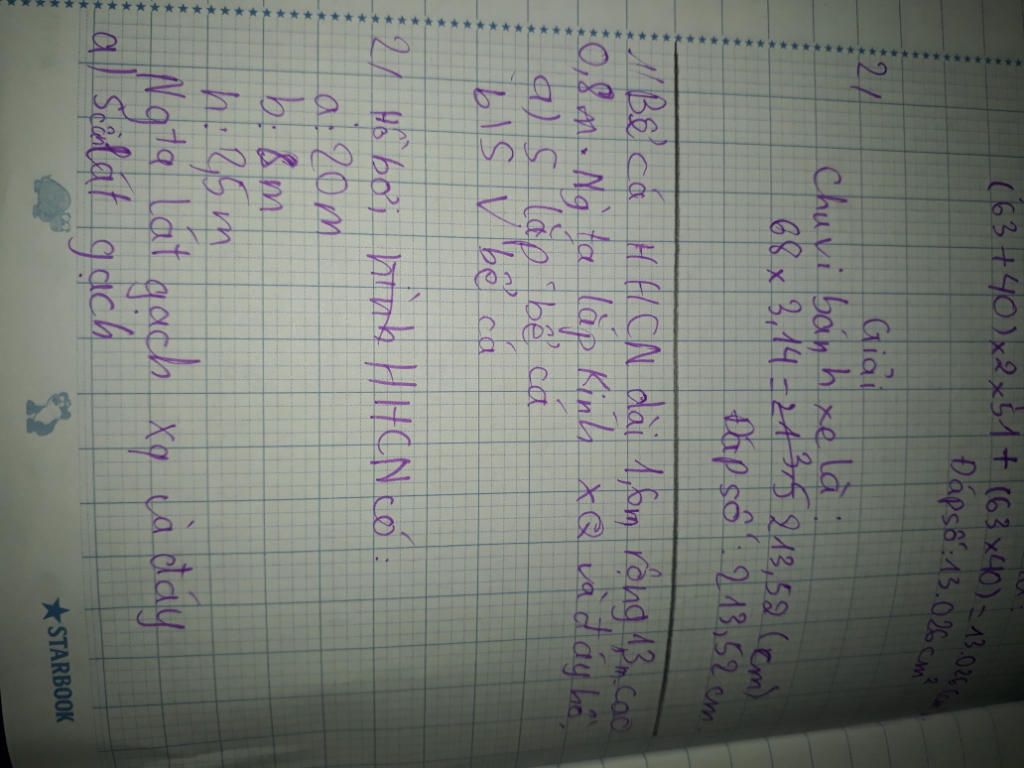 (63+40)x2x51+(63x40)=13.026
Đápsố:13.026cm²
2/
Giải
Chu vi bánh xe là:
68 x 3,14 = 213,5 213,52 (cm)
Đáp số: 213,52 cm
1/ Bể cá HHCN dài 1,6m rộng 1,3m cao
0,8m. Ng ta lắp kính XQ và đáy hồ,
a) S lắp bể cá
b) S V bể cá
2/ Hồ bơi hình HHCN có:
a: 20m
b: 8m
h: 2,5m
Ng ta lát gạch xq và đáy
a) S cần lát gạch
STARBOOK